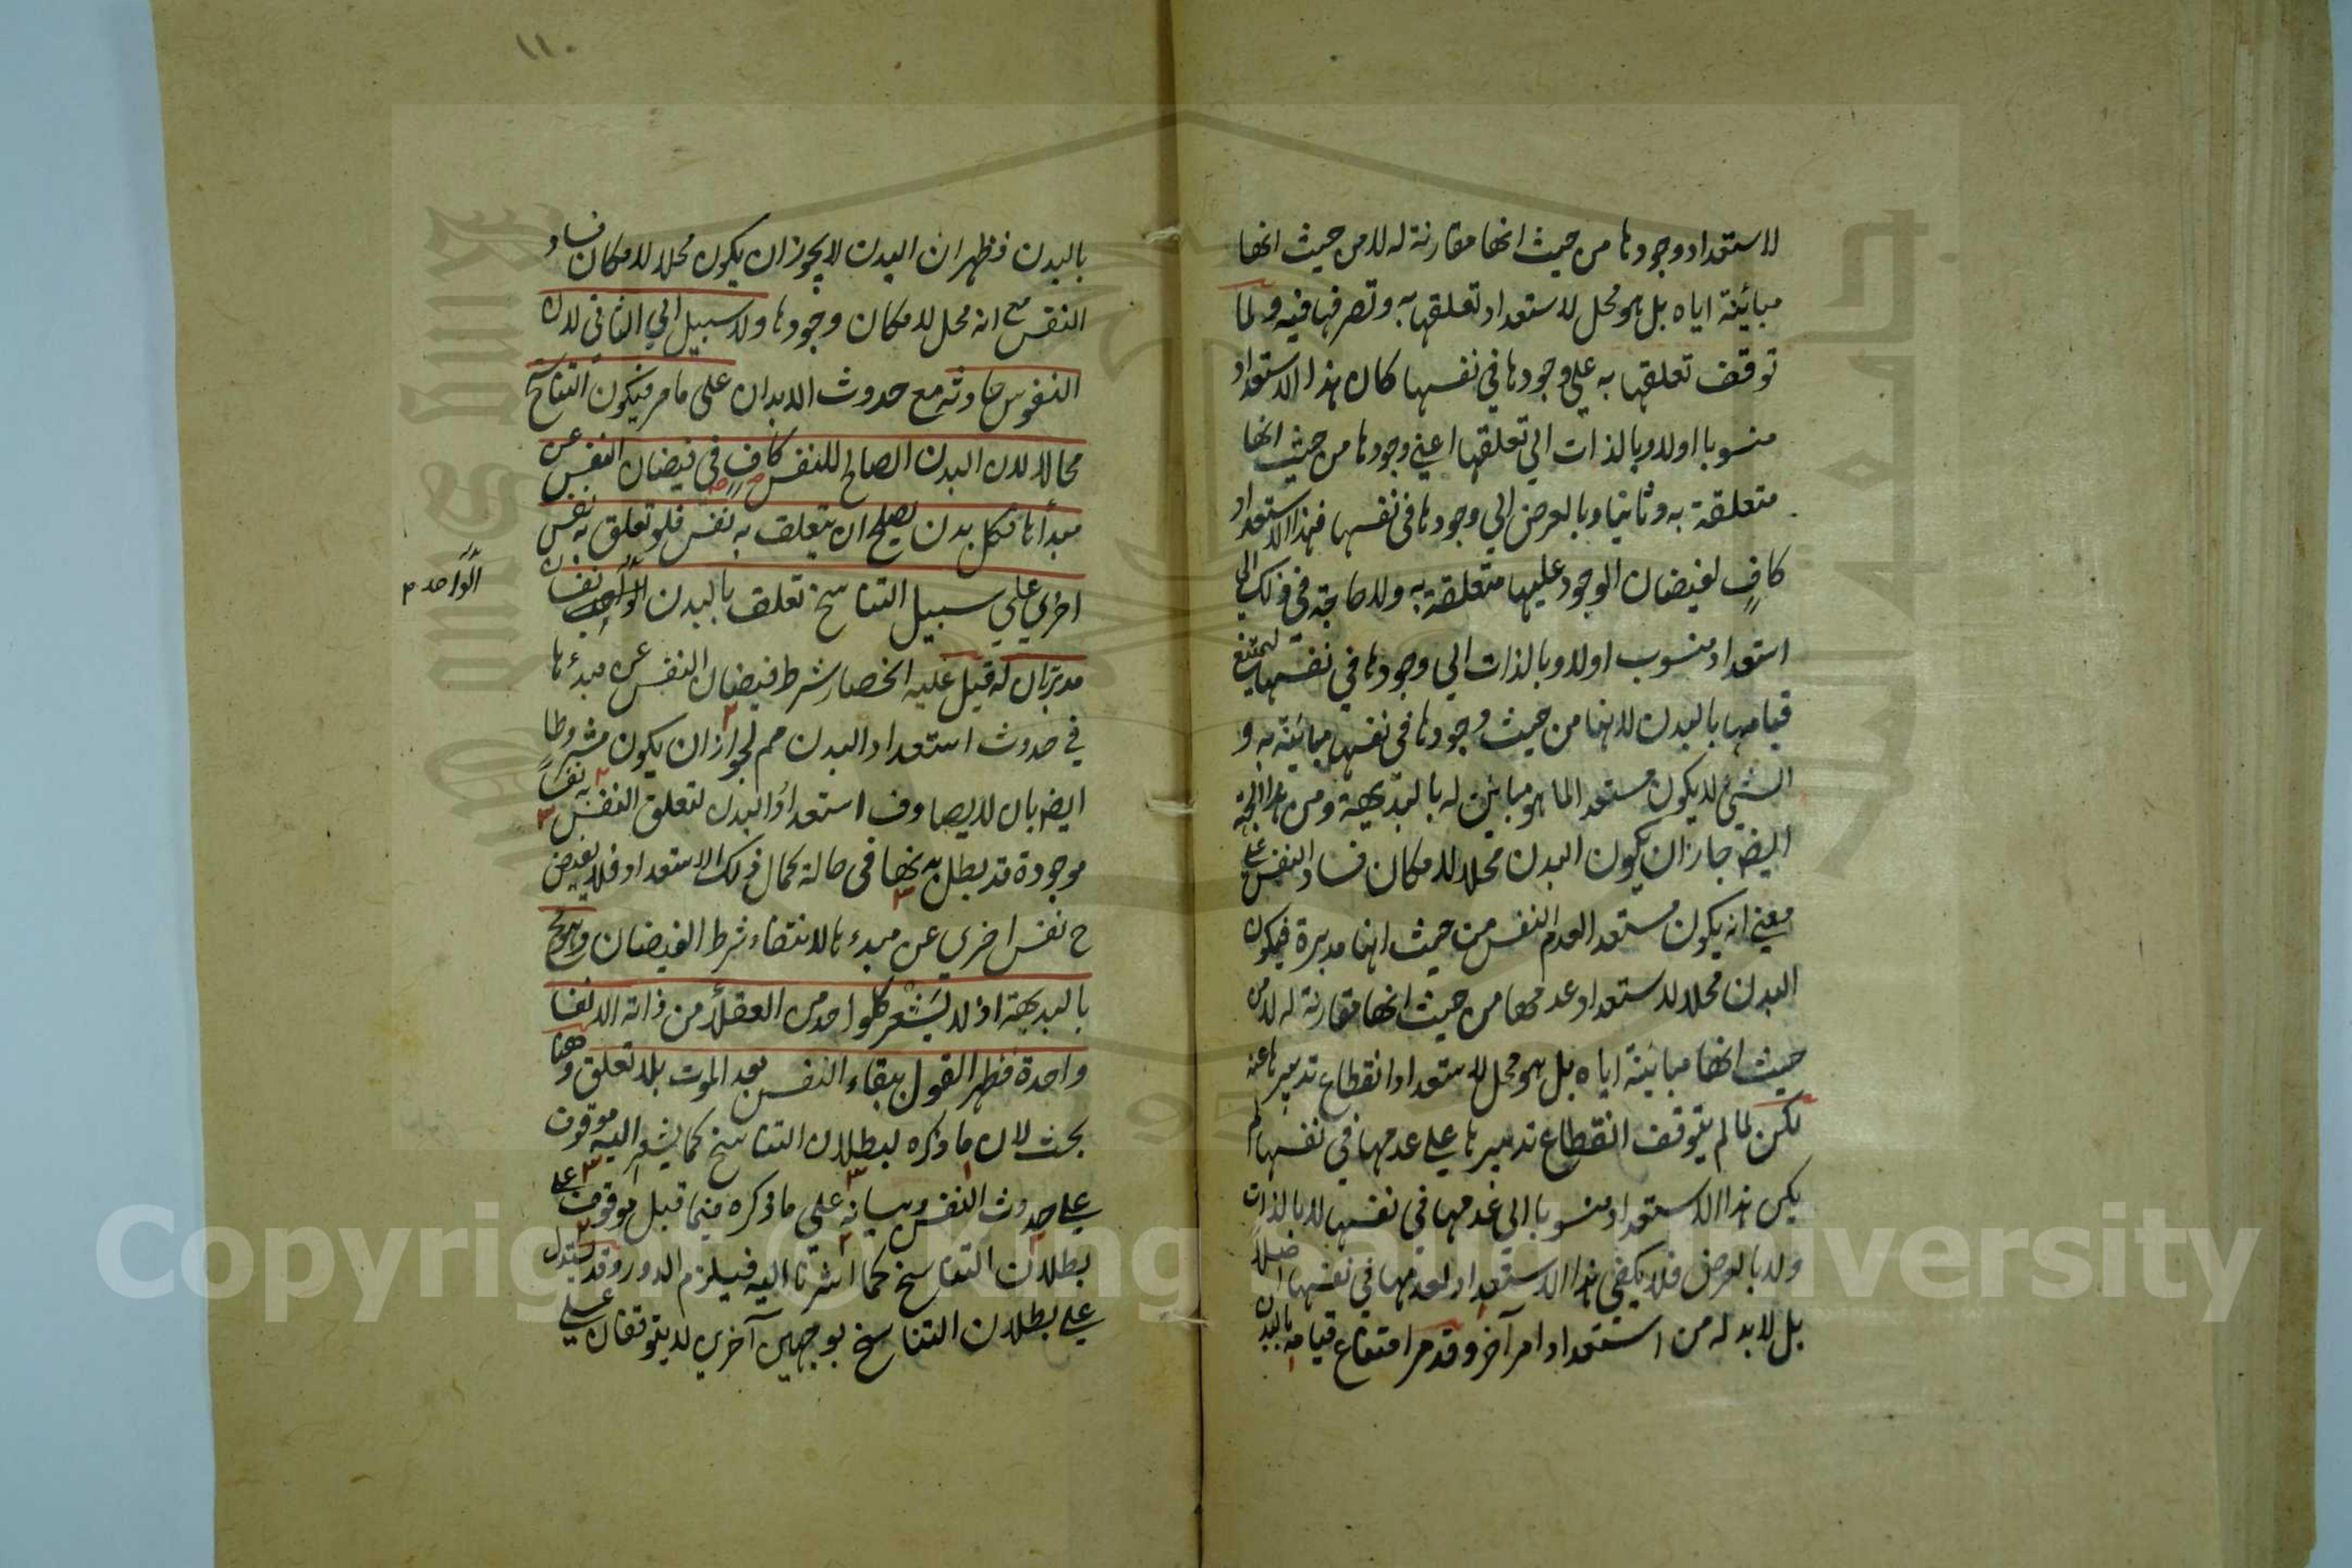 لاستعداد وجودها من حيث انها مقارنة له لا من حيث انها
مبائنة اياه بل هو محل لاستعداد تعلقها به وتصرفها فيه ولما
توقف تعلقها به على وجودها في نفسها كان هذا الاستعداد
منسوبا اولا وبالذات الي تعلقها اعني وجودها من حيث انها
متعلقة به وثانيا وبالعرض الي وجودها في نفسها فهذا الاستعداد
كافٍ لفيضان الوجود عليها متعلقة به ولا حاجة في ذلك الي
استعداد منسوب اولا وبالذات الي وجودها في نفسها ليمتنع
قيامها بالبدن لانها من حيث وجودها في نفسها مبائنة به و
الشيئ لا يكون مستعدا لما هو مباين له بالبديهة ومن هذا الجهة
ايض جاز ان يكون البدن محلا لامكان فساد النفس علي
معني انه يكون مستعدا لعدم النفس من حيث انها مدبرة فيكون
البدن محلا لاستعداد عدمها من حيث انها مقارنة له لا من
حيث انها مبائنة اياه بل هو محل لاستعداد انقطاع تدبيرها عنه
لكن لما لم يتوقف انقطاع تدبيرها علي عدمها في نفسها لم
يكن هذا الاستعداد منسوبا الي عدمها في نفسها لا بالذات
ولا بالعرض فلا يكفي هذا الاستعداد لعدمها في نفسها اصلاً
بل لا بد له من استعداد امر آخر وقد مر امتناع قيامه بالبدن
١١٠
بالبدن فظهر ان البدن لا يجوز ان يكون محلا لامكان فساد
النفس مع انه محل لامكان وجودها ولا سبيل الي الثاني لان
النفوس حادثة مع حدوث الابدان علي ما مر فيكون التناسخ
محالا لان البدن الصالح للنفس كافٍ في فيضان النفس عن
مبدأها فكل بدن يصلح ان يتعلق به نفس فلو تعلق به نفس
اخري علي سبيل التناسخ تعلق بالبدن نفسان
الواحد م
مدبرتان له قيل عليه انحصار شرط فيضان النفس عن مبدءها
في حدوث استعداد البدن مم لجواز ان يكون مشروطا
ايض بان لا يصادف استعداد البدن لتعلق النفس به نفسا
موجودة قد بطل بدنها في حالة كمال ذلك الاستعداد فلا يفيض
ح نفس اخري عن مبدءها لانتفاء شرط الفيضان وهو مح
بالبديهة اذ لا يشعر كل واحد من العقلاء من ذاته الا نفسا
واحدة فظهر القول ببقاء النفس بعد الموت بلا تعلق وههنا
بحث لان ما ذكره لبطلان التناسخ كما يشير اليه موقوف
علي حدوث النفس وبيانه علي ما ذكره فيما قبل موقوف علي
بطلان التناسخ كما اشرنا اليه فيلزم الدور وقد يستدل
علي بطلان التناسخ بوجهين آخرين لا يتوقفان علي